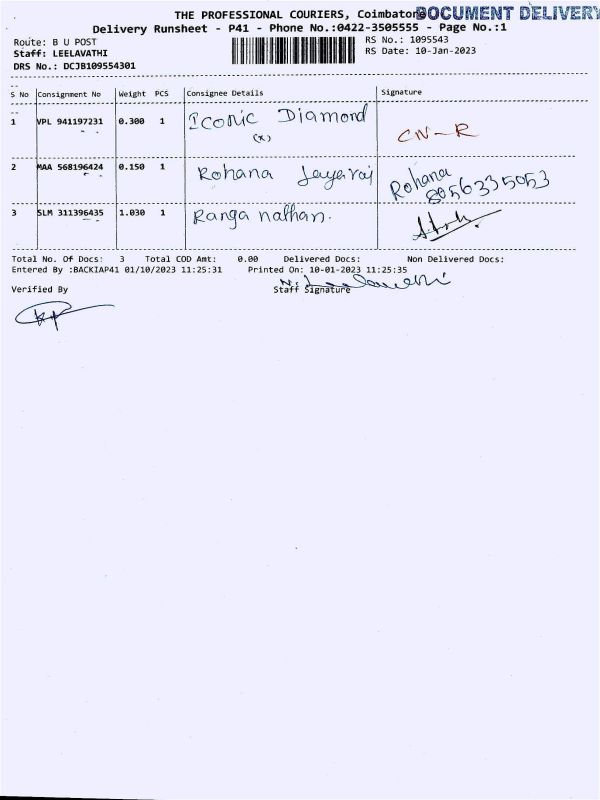 THE PROFESSIONAL COURIERS, Coimbatore DOCUMENT DELIVERY
Delivery Runsheet - P41 - Phone No.:0422-3505555 - Page No.:1
Route: B U POST
RS No.: 1095543
Staff: LEELAVATHI
RS Date: 10-Jan-2023
DRS No.: DCJB109554301
S No Consignment No Weight PCS Consignee Details Signature
1 VPL 941197231 0.300 1 Iconic Diamond
(x)
CN-R
2 MAA 568196424 0.150 1 Rohana Jayaraj Rohana
8056335053
3 SLM 311396435 1.030 1 Ranganathan.
Total No. Of Docs: 3 Total COD Amt: 0.00 Delivered Docs: Non Delivered Docs:
Entered By :BACKIAP41 01/10/2023 11:25:31 Printed On: 10-01-2023 11:25:35
Verified By Staff Signature